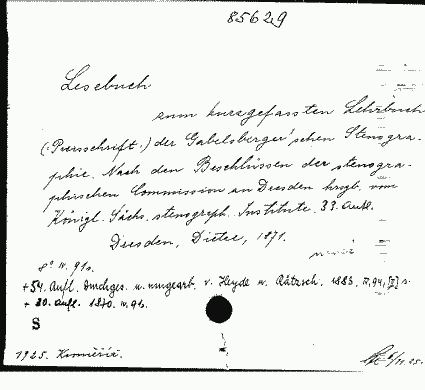 85629
Lesebuch
zum kurzgefassten Lehrbuch
(:Preisschrift:) der Gabelsberger'schen Stenogra-
phie. Nach den Beschlüssen der stenogra-
phischen Commission an Dresden hrsgb. vom
Königl. Sächs. stenograph. Institute. 33. Aufl.
Dresden, Dietze, 1871.
8° IV. 91 s.
+ 54. Aufl. Durchges. u. umgearb. v. Heyde u. Rätzsch. 1883. IV, 94, [I] s.
+ 30. Aufl. 1870. IV. 96.
S
1925.